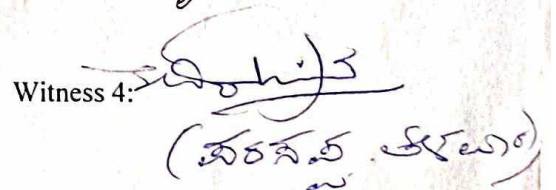 Witness 4:
(ಪರಸಪ್ಪ ತಳವಾರ)